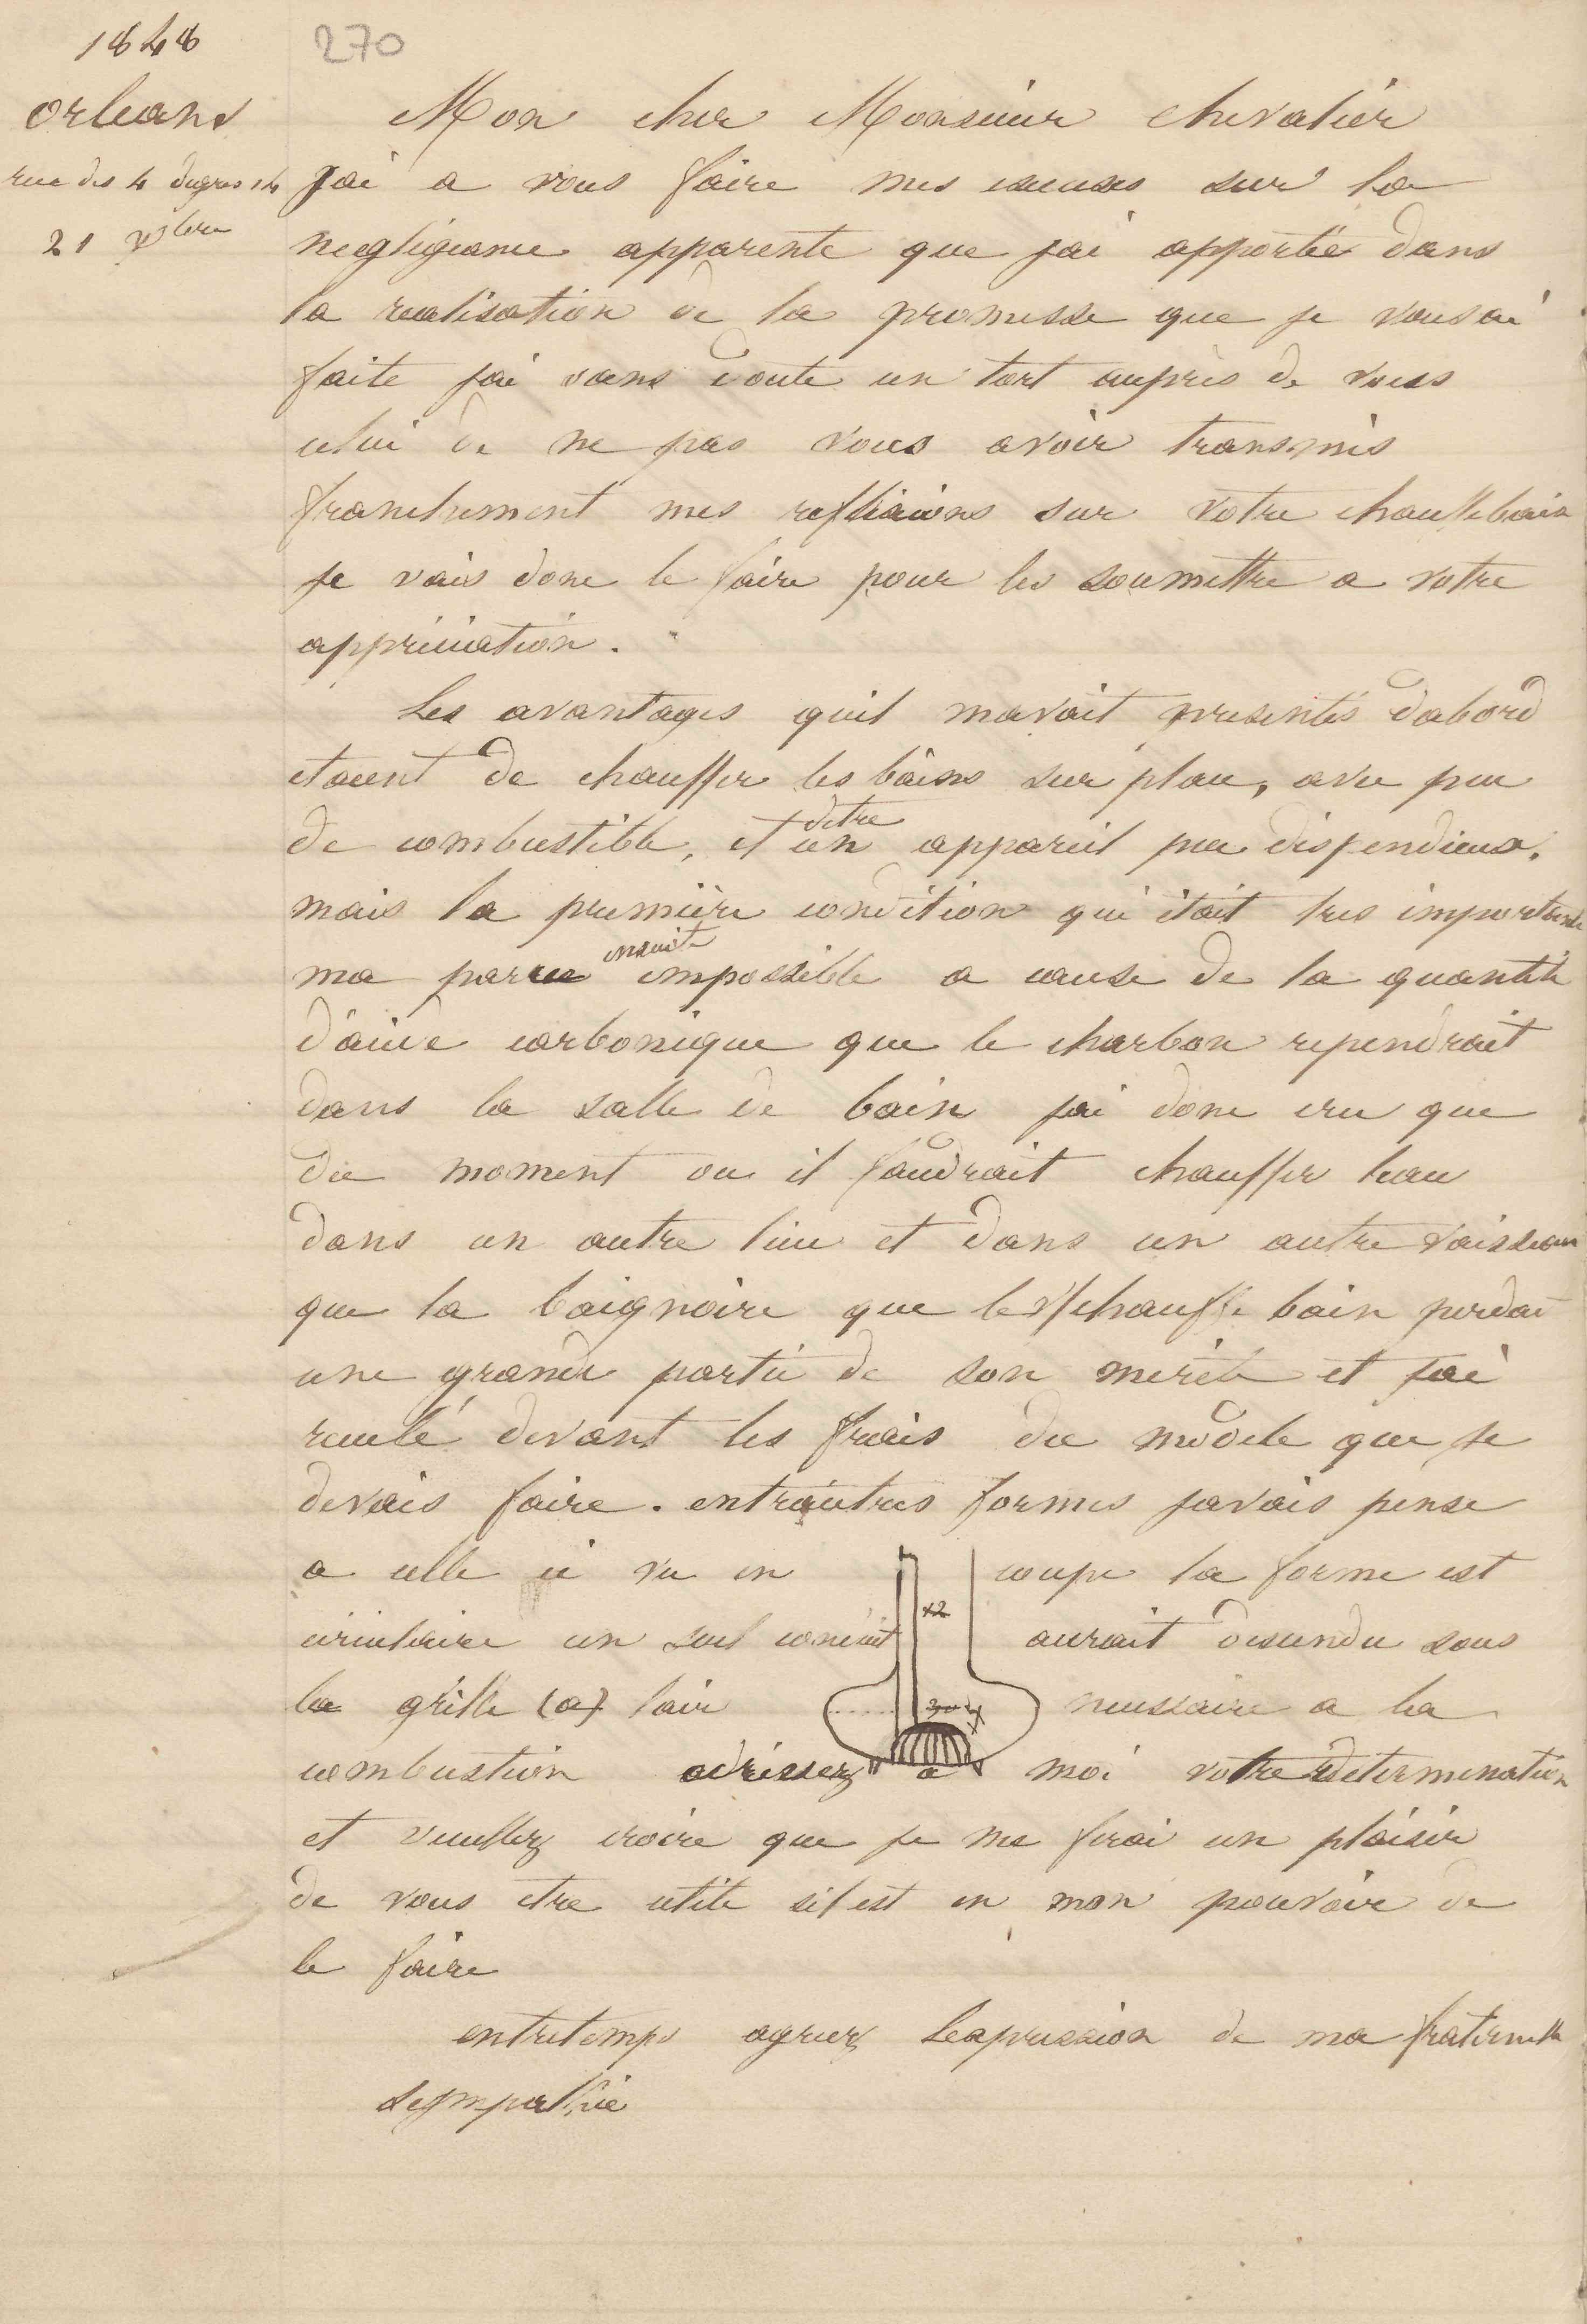 1848
270
orleans
rue des 4 degres 14
21 Xbre
Mon cher Monsieur chevalier
jai a vous faire mes excuses sur la
negligeance apparente que jai apportée dans
la realisation de la promesse que je vous ai
faite jai sans doute un tort auprès de vous
celui de ne pas vous avoir transmis
franchement mes reflexions sur votre chauffebain
je vais donc le faire pour les soumettre a votre
appréciation.
Les avantages quil mavait presentés dabord
etaient de chauffer les bains sur place, avec peu
detre
de combustible, et un appareil peu dispendieux.
mais la première condition qui était tres importante
ensuite
ma parue impossible a cause de la quantité
dacide carbonique que le charbon rependrait
dans la salle de bain jai donc cru que
du moment ou il faudrait chauffer leau
dans un autre lieu et dans un autre vaisseau
que la baignoire que le chauffe bain perdai
une grande partie de son merite et jai
reculé devant les frais du modele que je
devais faire. entrautres formes javais pense
a celle ci vu en coupe la forme est
circulaire un seul conduit aurait descendu sous
la grille (a) lair necessaire a la
combustion adressez a moi votre determination
et veuillez croire que je me ferai un plaisir
de vous etre utile sil est en mon pouvoir de
le faire
entretemps agreez lexpression de ma fraternelle
sympathie